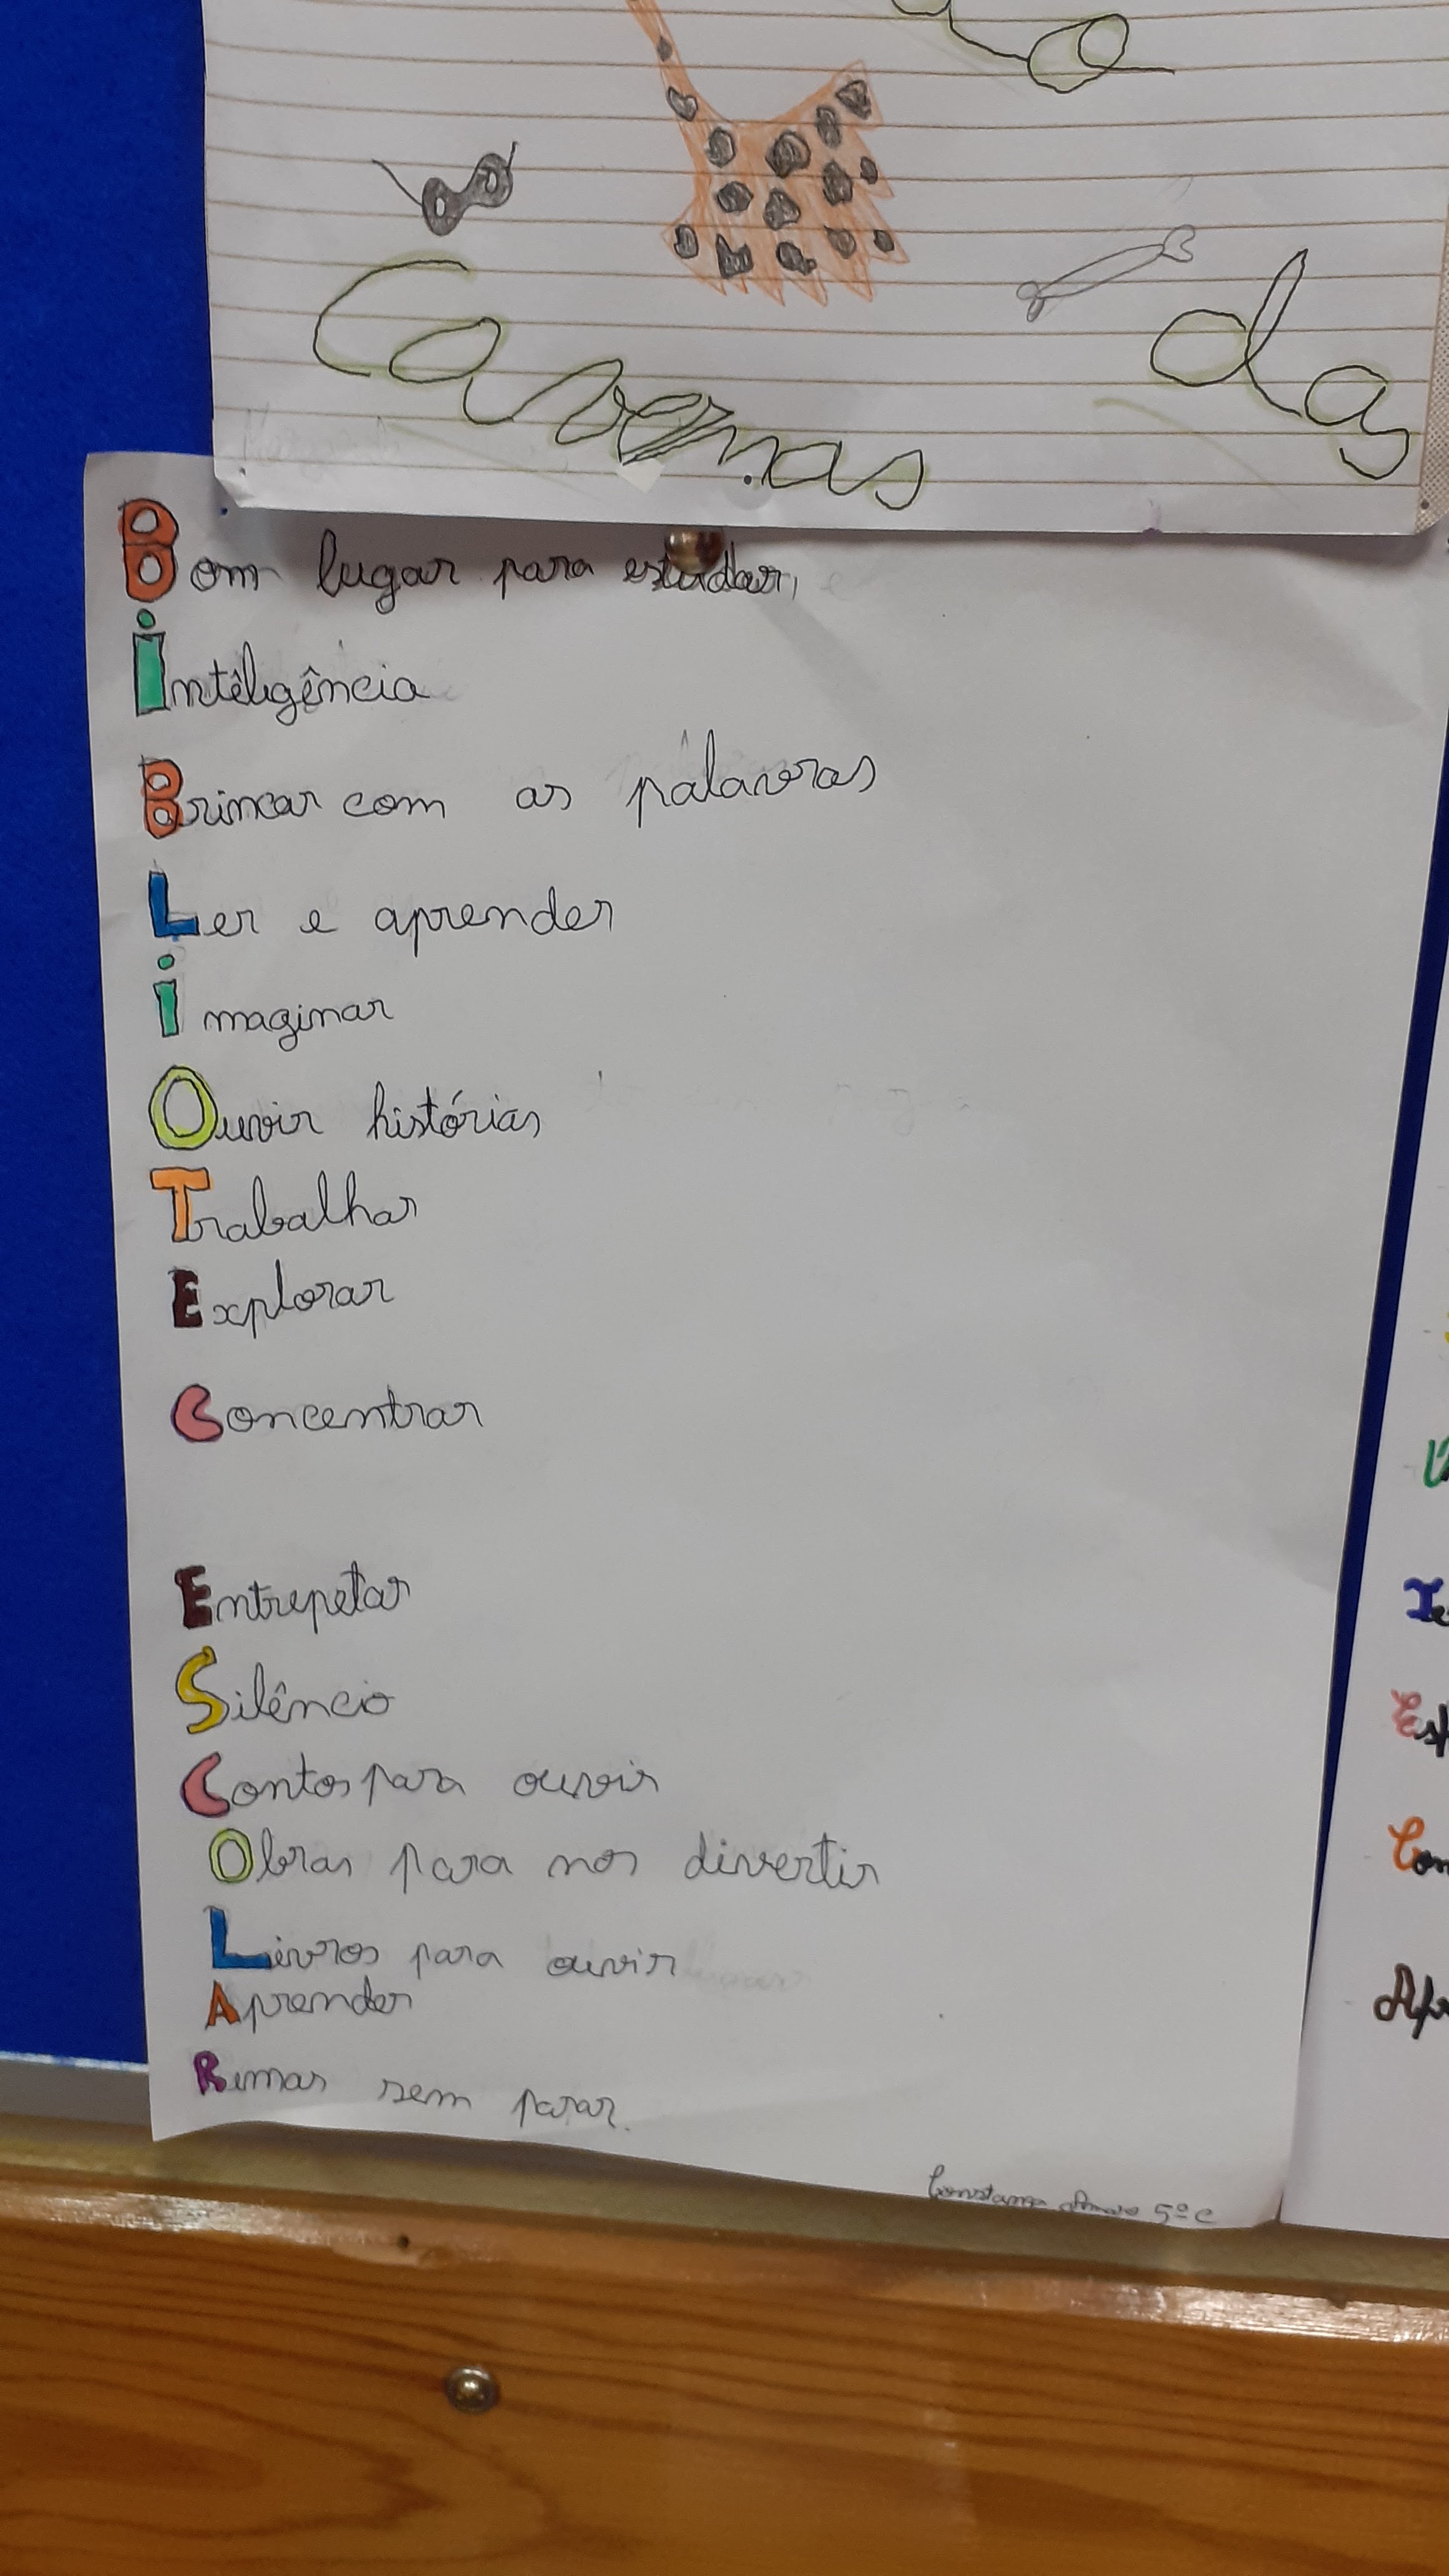 das
Cavernas
Bom lugar para estudar,
Inteligência
Brincar com as palavras
Ler e aprender
imaginar
Ouvir histórias
Trabalhar
Explorar
Concentrar
Entrepetar
Silêncio
Contos para ouvir
Obras para nos divertir
Livros para ouvir
Aprender
Rimas sem parar.
5º C